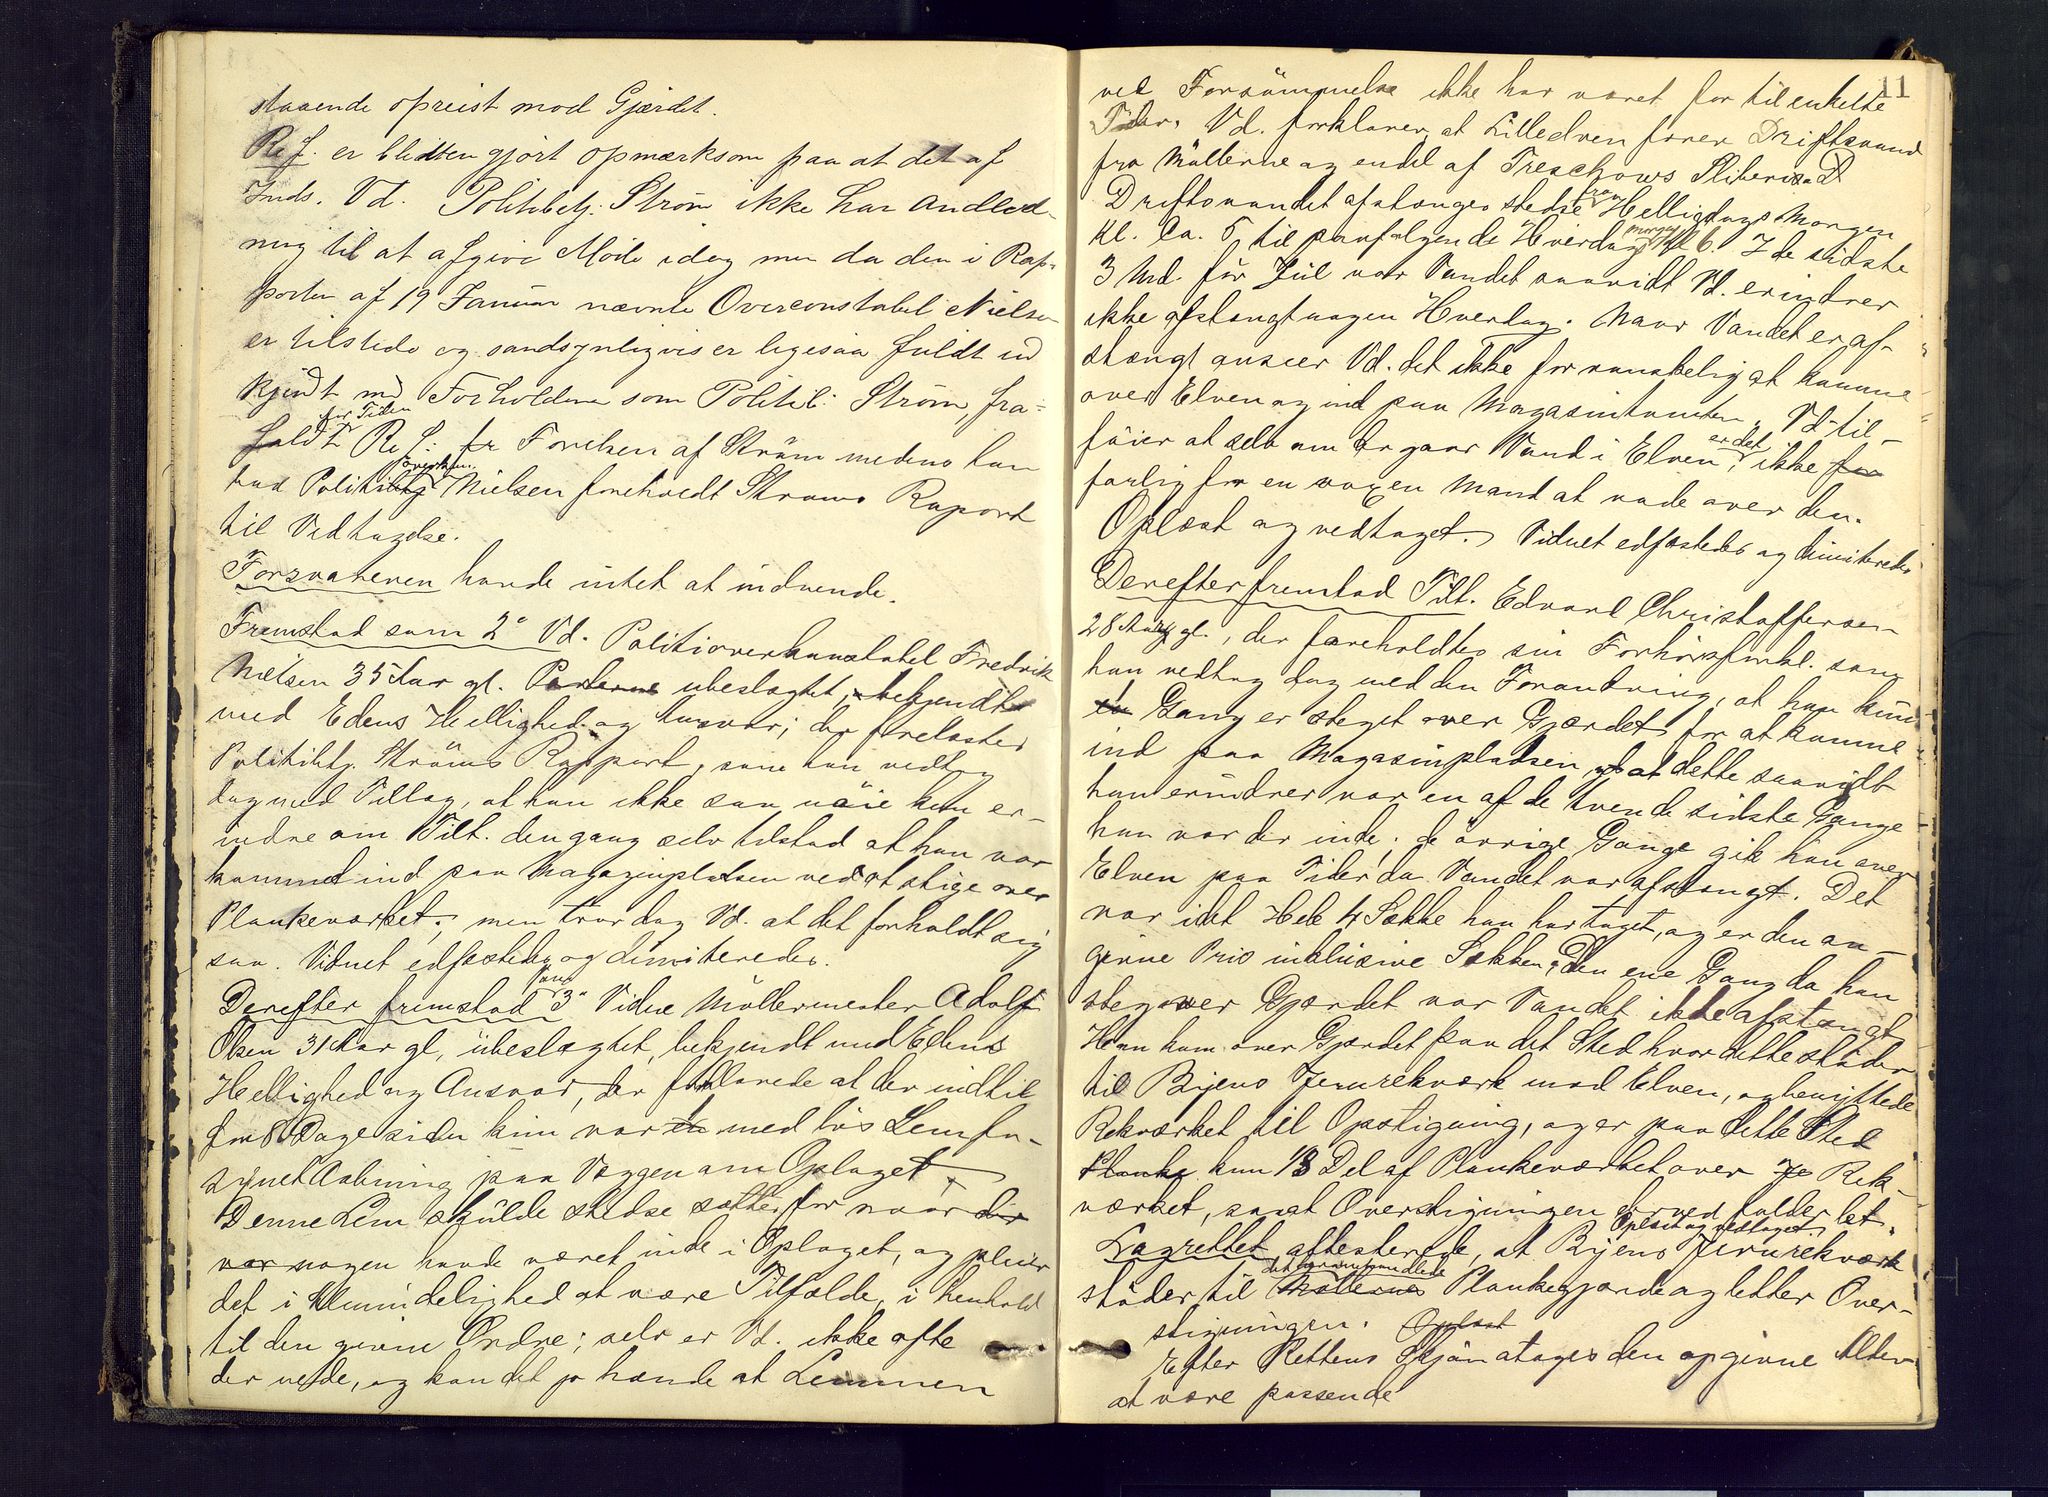 staaende opreist mod Gjærdt.
Ref. er bleven gjort opmærksom paa at det af
Inds. Vd. Politibetj. Strøm ikke har andled-
ning til at afgive Møde idag men da den i Rap-
porten af 19 Januar nævnte Overconstabel Nielsen
er tilstede og sandsynligvis er ligesaa fuldt ud
kjendt md Forholdene som Politib: Strøm fra-
for Tiden
faldt Ref. Førelsen af Strøm medens han
Overkon.
bad Politibetj Nielsen foreholdt Strøms Raport
til Vedtagelse.
Forsvareren havde intet at indvende.
Fremstod som 2° Vd. Politioverkonstabel Fredrik
Nielsen 35 Aar gl. Parterne ubeslægtet, bekjendt
med Edens Hellighed og Ansvar; der forelæstes
Politibtj. Strøms Rapport, som han vedtog
dog med Tillæg, at han ikke saa nøie kan er-
indre om Tilt. dengang selv tilstod at han var
kommet ind paa Magazinpladsen ved at stige over
Plankeværket; men tror dog Vd. at det forholdt sig
saa. Vidnet edfæstedes og dimitteredes.
Derefter fremstod som 3° Vidne Møllermester Adolf
Olsen 31 Aar gl, ubeslægtet, bekjendt med Edens
Hellighed og Ansvar, der forklarede at der indtil
for 8 Dage siden kun var en med løs Lem for-
synet Aabning paa Væggen om Oplaget.
Denne Lem skulde stedse sættes for naar der
var nogen havde været inde i Oplaget, og pleier
det i Almindelighed at være Tilfælde, i Henhold
til den givne Ordre; selv er Vd. ikke ofte
der nede, og kan det jo hænde at Lemmen
11
ved Forsømmelse ikke har været for til enkelte
Tider. Vd. forklarer, at Lilleelven fører Driftsvand
fra Møllerne og endel af Treschows Sliberi.
Driftsvandet afstænges stedse fra Helligdags Morgen
Kl. Ca. 5 til paafølgende Hverdag morgen Kl 6. I de sidste
3 Md. før Jul var Vandet saavidt Vd. erindrer
ikke afstængt nogen Hverdag. Naar Vandet er af-
stængt anseer Vd. det ikke for vanskelig at komme
over Elven og ind paa Magasintomten. Vd til-
er det
føier at selv om der gaar Vand i Elven, ikke for
farlig for en voxen Mand at vade over den.
Oplæst og vedtaget. Vidnet edfæstedes og dimitteredes
Derefter fremstod Tilt. Edvard Christoffersen
28 Aar gl., der foreholdtes sin Forhørsforkl. som
han vedtog dog med den Forandring, at han kun
en Gang er steget over Gjærdet for at komme
ind paa Magasinpladsen, og at dette saavidt
han erindrer var en af de tvende sidste Gange
han var der inde; de øvrige Gange gik han over
Elven paa Tider da Vandet var afstængt. Det
var i det Hele 4 Sække han har taget, og er den an-
givne Pris inklusive Sækken; Den ene Gang da han
steg over Gjærdet var Vandet ikke afstængt
Han kom over Gjærdet paa det Sted hvor dette støder
til Byens Jernrekværk mod Elven, og benyttede
Rekværket til Opstigning, og er paa dette Sted
Planke kun 1/3 Del af Plankeværket over Je Rek-
værket, saa at Overstigningen derved falder let.
Oplæst og vedtaget.
Lagrettet attesterede, at Byens Jernrekværk
det
støder til Møllernes Plankegjærde og letter Over-
stigningen. Oplæst
Efter Rettens Skjøn atoges den opgivne Alder
at være passende